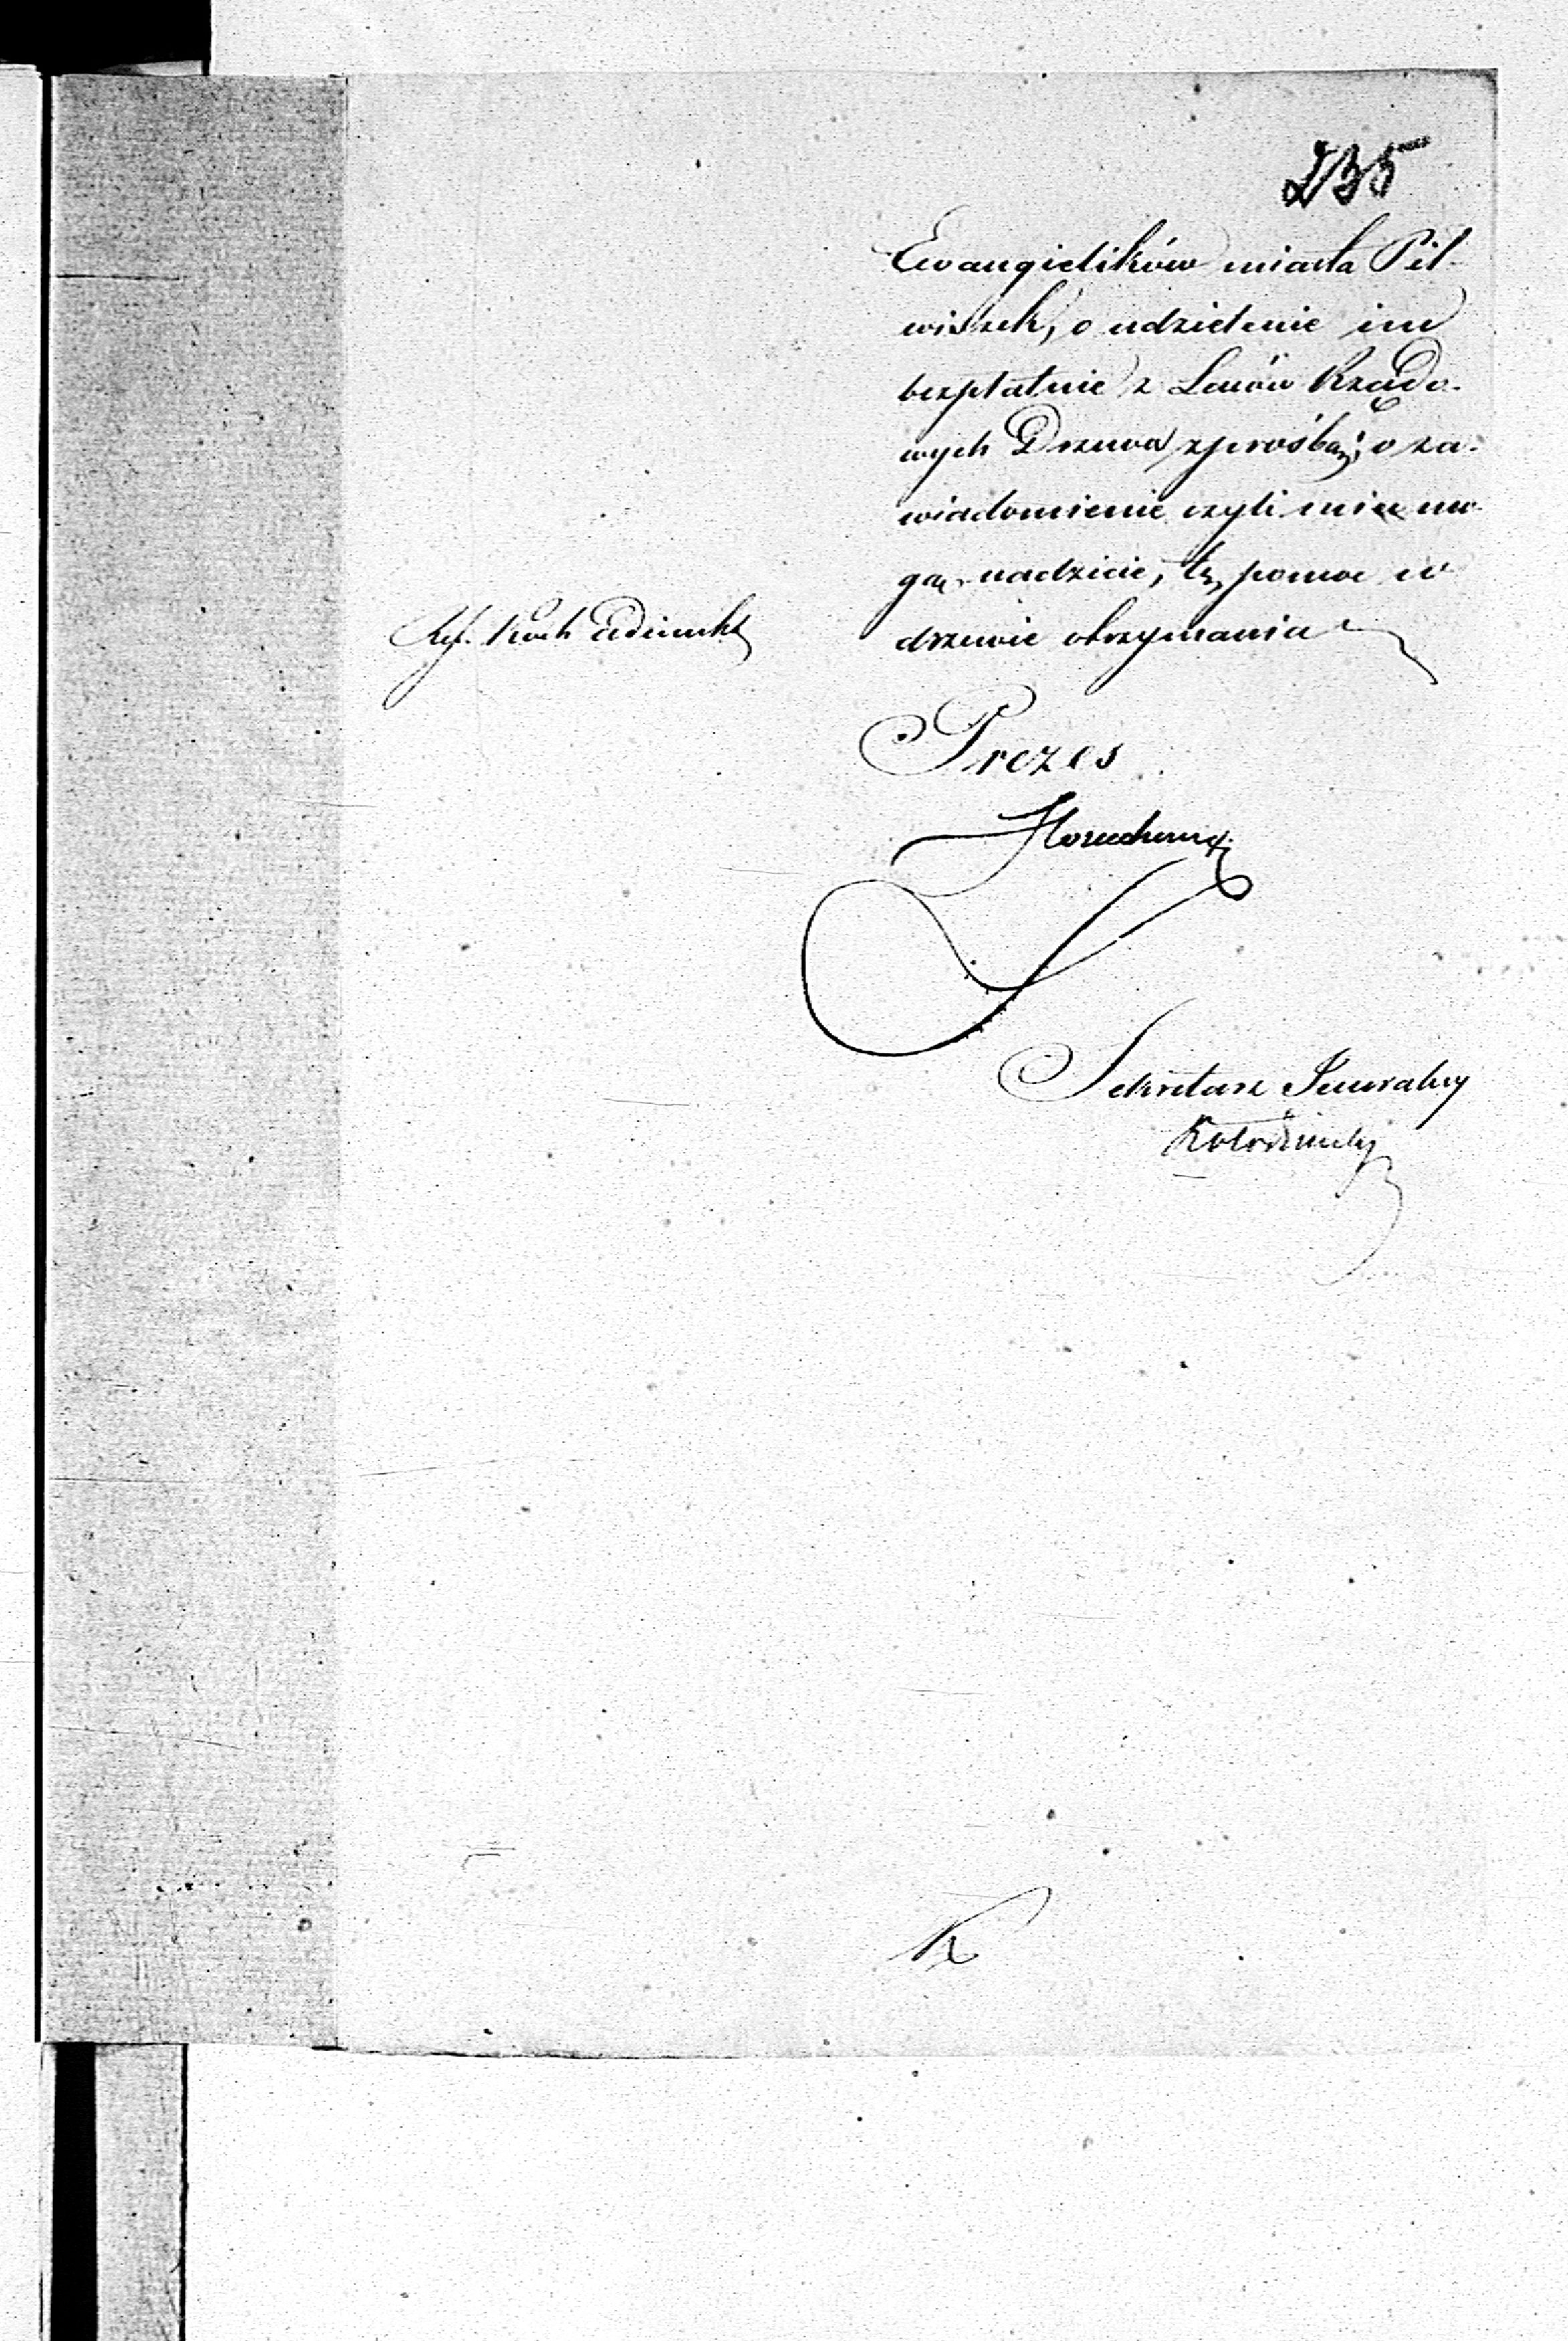 235
Ewangielików miasta Pil-
wiszek, o udzielenie im
bezpłatnie z Lasów Rządo-
wych Drzewa z prośbą, o za-
wiadomienie czyli mieć mo-
gą nadzieie, tę pomoc w
drzewie otrzymania
Prezes
Sekretarz Jeneralny